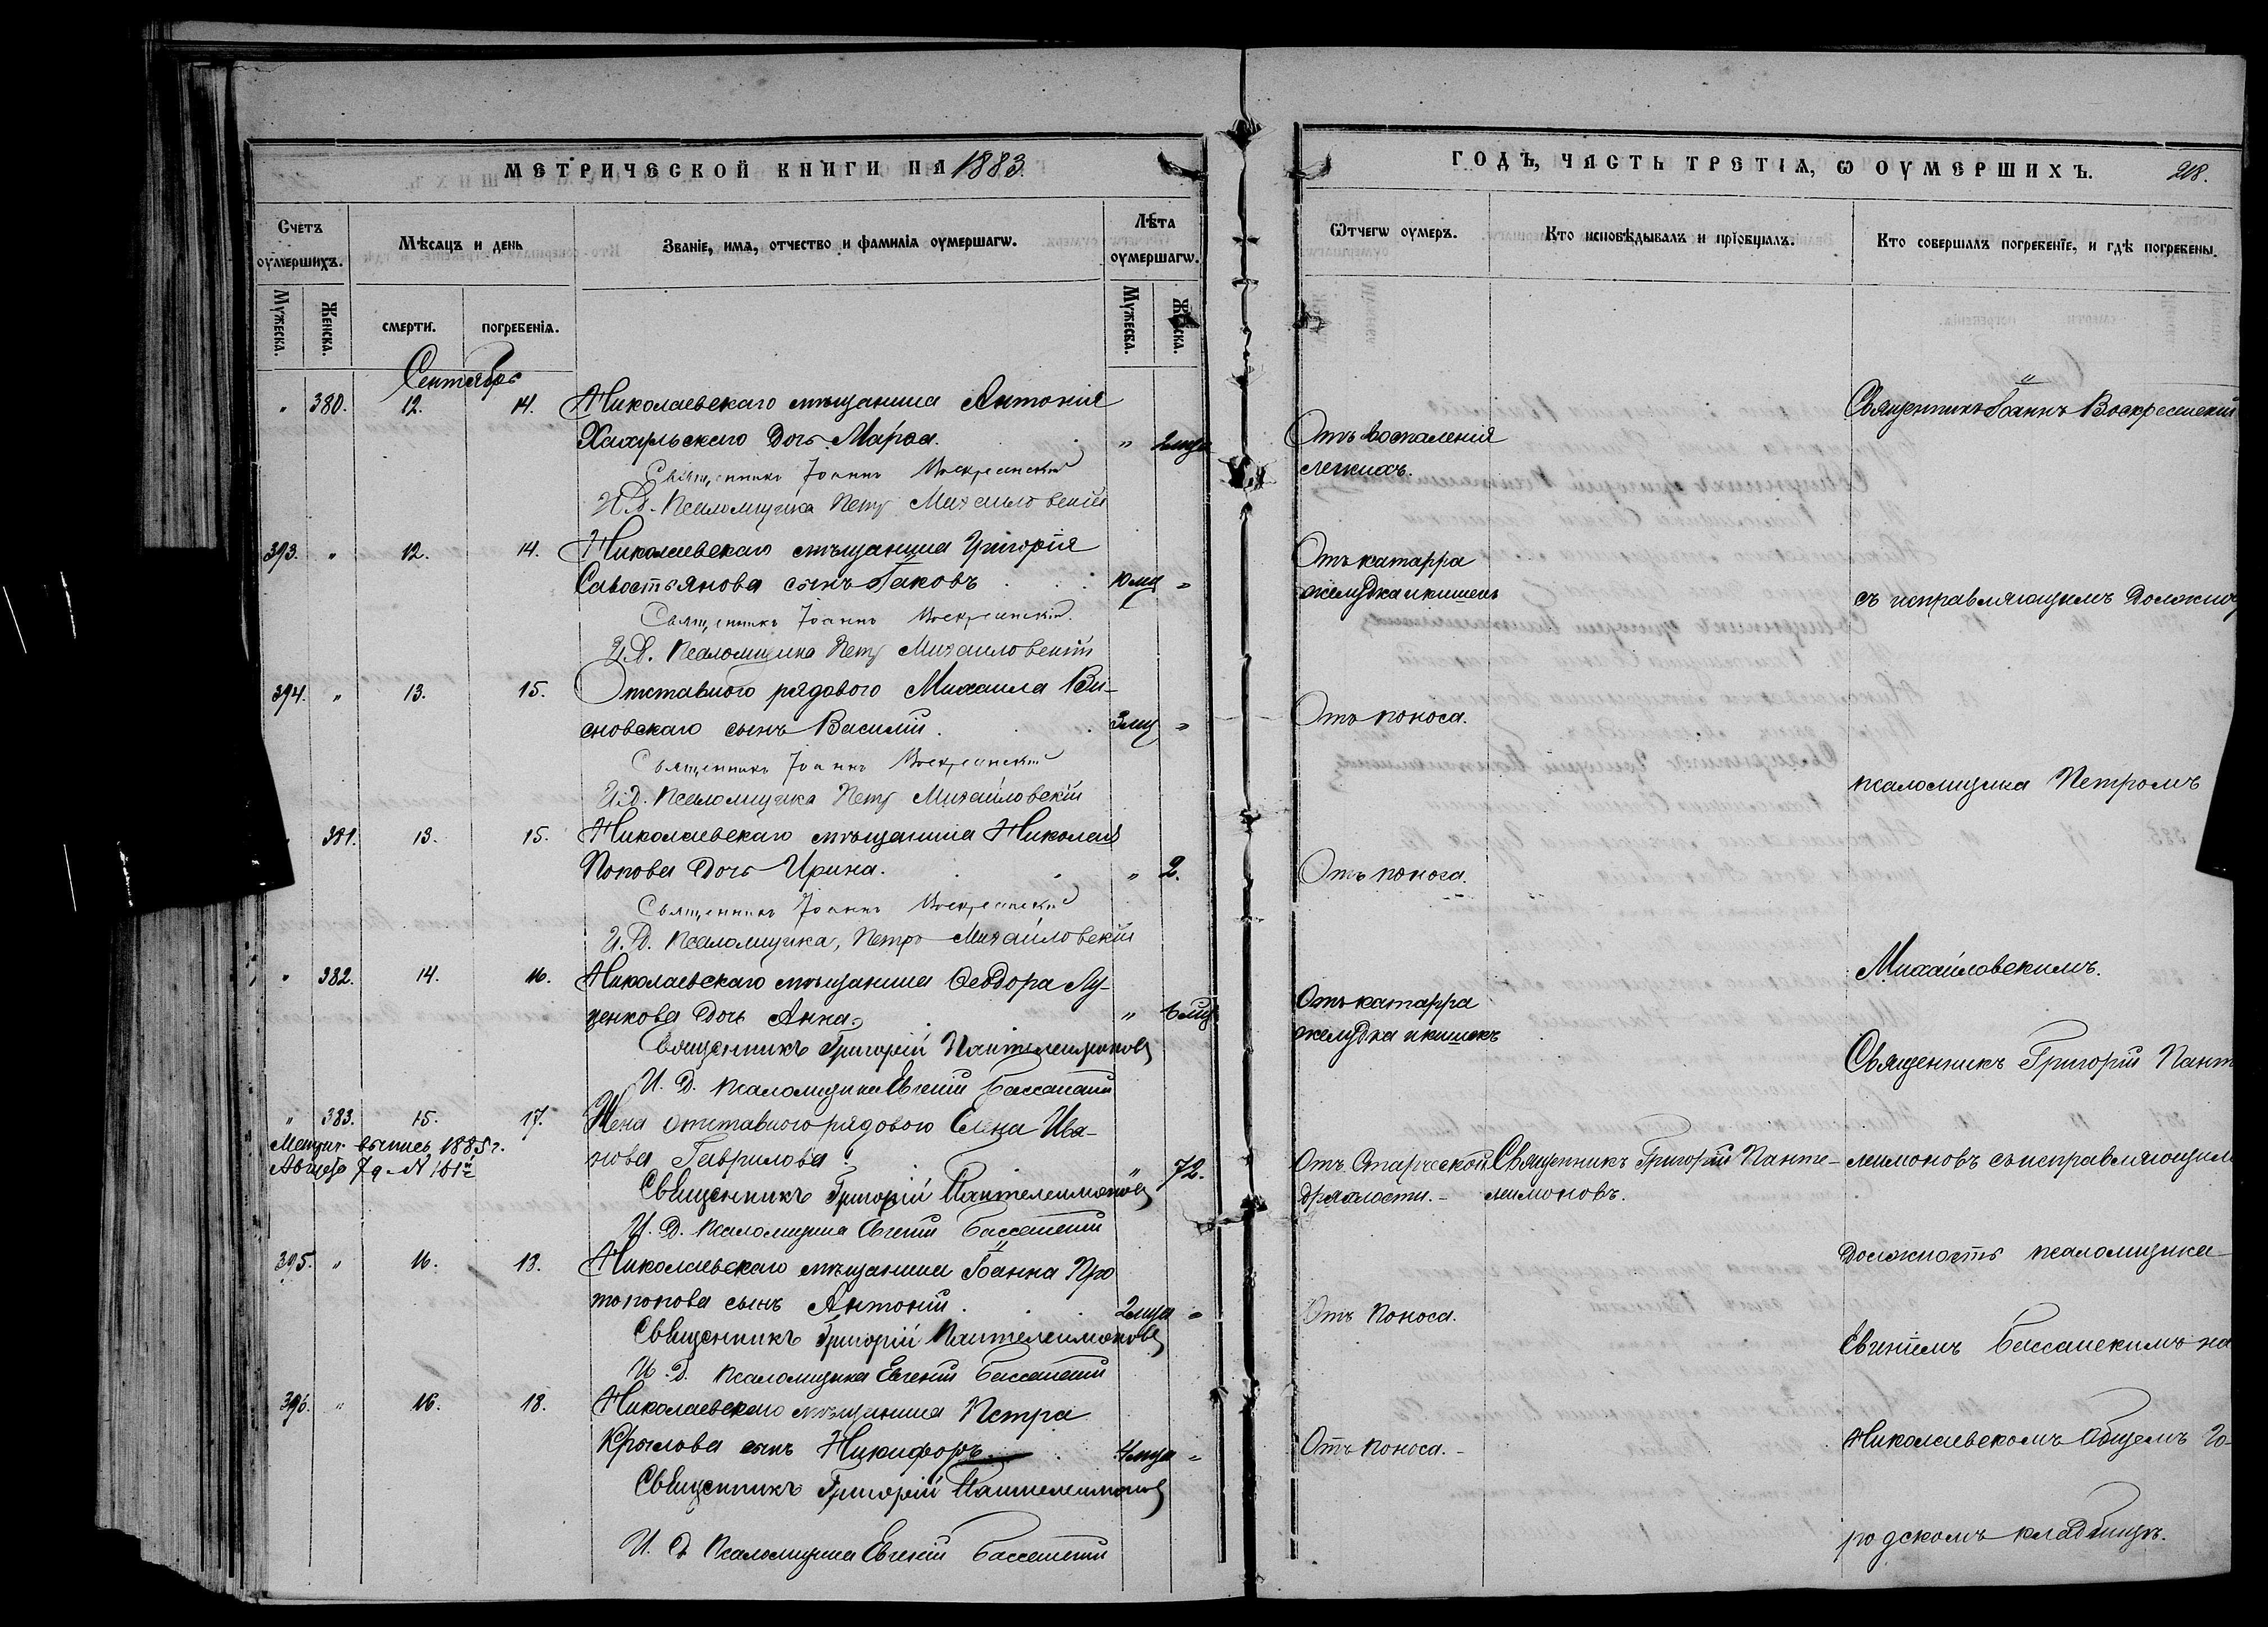 МЕТРИЧЕСКОЙ КНИГИ НА 1883
ГОДЪ, ЧАСТЬ ТРЕТІЯ, Ѡ ОУМЕРШИХЪ. 218.
Счетъ оумершихъ.
Мѣсяцъ и день
Званіе, имя, отчество и фамилія оумершагѡ.
Лѣта оумершагѡ.
Мужеска.
Женска.
смерти.
погребенія.
Мужеска.
Женска.
Ѿтчегѡ оумеръ.
Кто исповѣдывалъ и пріобщалъ.
Кто совершалъ погребеніе, и гдѣ погребены.
Сентябрь
" 380. 12. 14. Николаевскаго мѣщанина Антонія
Дочь Марѳа. " 2 мца
Отъ воспаленія
легкихъ.
Священникъ Іоаннъ Воскресенскій
Священникъ Іоаннъ Воскресенскій
И.Д. Псаломщика Петръ Михайловскій
393. " 12. 14. Николаевскаго мѣщанина Григорія
Савостьянова сынъ Іаковъ "
Отъ катарра
желудка и кишекъ
Священникъ Іоаннъ Воскресенскій.
съ исправляющимъ
И.Д. Псаломщика Петръ Михайловскій
394. " 13. 15. Отставного рядового Михаила Ви-
сновскаго сынъ Василій. 3 мц "
Отъ поноса.
Священникъ Іоаннъ Воскресенскій
И.Д. Псаломщика Петръ Михайловскій
псаломщика Петромъ
" 381. 13. 15. Николаевскаго мѣщанина Николая
Попова Дочь Ирина. " 2.
Отъ поноса.
Священникъ Іоаннъ Воскресенскій
И.Д. Псаломщика, Петръ Михайловскій
Михайловскимъ.
" 382. 14. 16. Николаевскаго мѣщанина Ѳеодора Лу-
ценкова Дочь Анна. " 6 мц
Отъ катарра
желудка и кишекъ
Священникъ Григорій Пантелеимоновъ
Священникъ Григорій Панте
И. Д. Псаломщика Евгеній Бассанскій
" 383. 15. 17. Жена отставного рядового Елена Ива-
нова Гаврилова. " 72.
Метрич. выпись 1885 г.
Августа 7 д. №
Отъ Старческой
дряхлости.
Священникъ Григорій Панте-
леимоновъ.
леимоновъ съ исправляющимъ
Священникъ Григорій Пантелеимоновъ
И. Д. Псаломщика Евгеній Бассанскій
должность псаломщика
395. " 16. 18. Николаевскаго мѣщанина Іоанна Про
топопова сынъ Антоній. 2 мца "
Отъ поноса.
Священникъ Григорій Пантелеимоновъ
Евгеніемъ Бассанскимъ на
И. Д. Псаломщика Евгеній Бассанскій
396. " 16. 18. Николаевскаго мѣщанина Петра
Крылова сынъ Никифоръ 4 мца "
Отъ поноса.
Николаевскомъ Общемъ Го-
Священникъ Григорій Пантелеимоновъ
родскомъ кладбищѣ.
И. Д. Псаломщика Евгеній Бассанскій